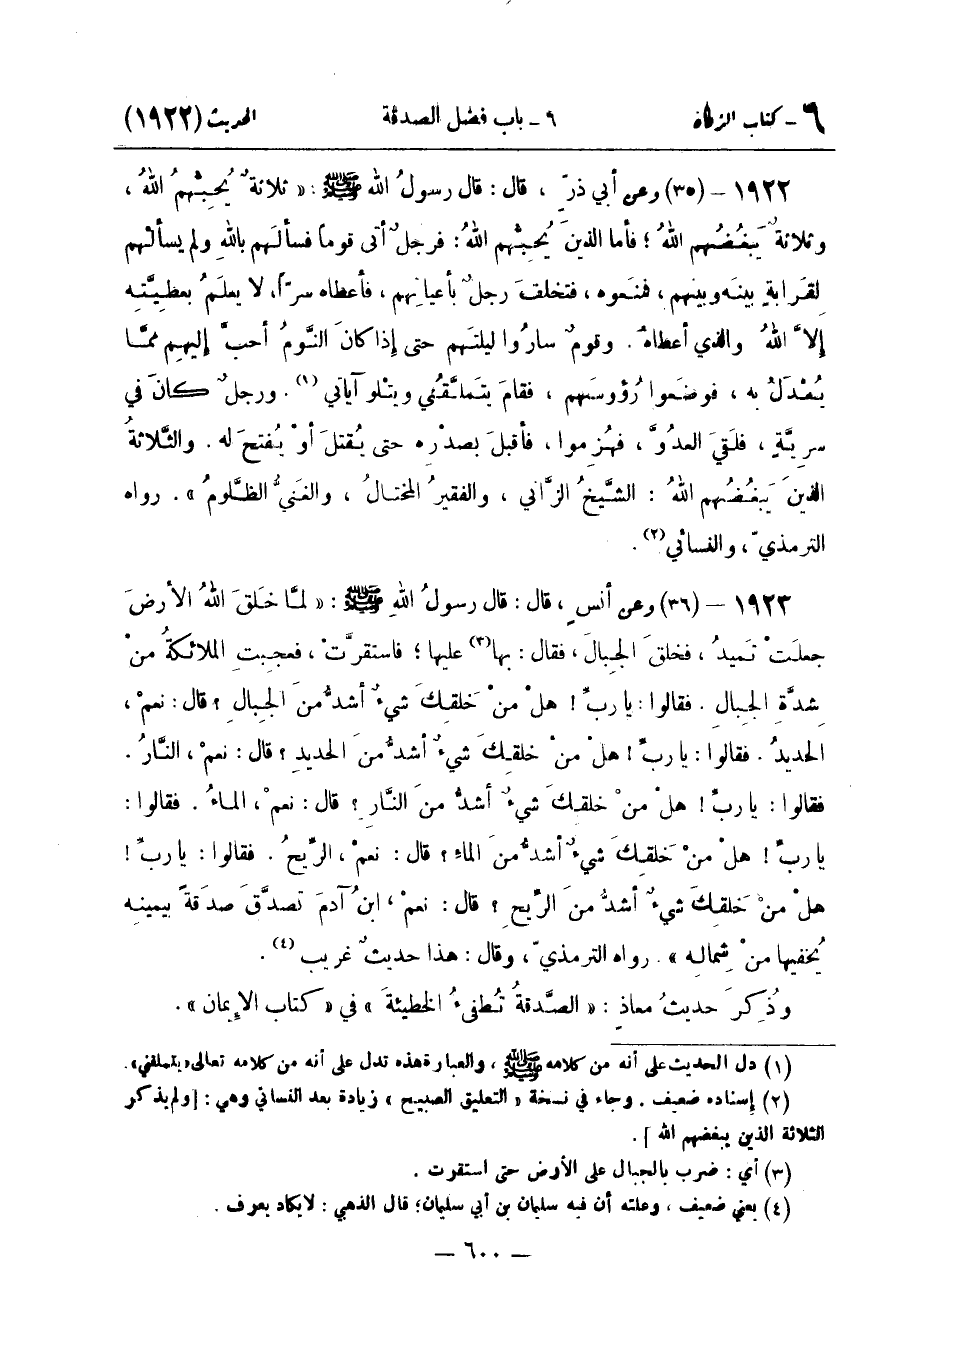 ٦ - كتاب الزكاة ٩ - باب فضل الصدقة الحديث (١٩٢٢)
١٩٢٢ - (٣٥) وعن أبي ذرّ ، قال : قال رسولُ الله ﷺ : « ثلاثةٌ يُحبُّهمُ اللهُ ،
وثلاثةٌ يَبغُضُهم اللهُ ؛ فأما الذينَ يُحبُّهم اللهُ : فرجلٌ أتى قوماً فسألَهم باللهِ ولم يسألْهم
لقَرابةٍ بينَه وبينهم ، فمنَعوه ، فتخلفَ رجلٌ بأعيانِهم ، فأعطاه سرّاً، لا يعلمُ بعطيَّتِه
إلاَّ اللهُ والذي أعطاهُ . وقومٌ سارُوا ليلتَهم حتى إذا كانَ النَّومُ أحبَّ إليهِم ممَّا
يُعْدَلُ به ، فوضَعوا رُؤوسَهم ، فقامَ يتَملَّقُني ويتْلو آياتي (١) . ورجلٌ كانَ في
سريَّةٍ ، فلَقيَ العدوَّ ، فهُزموا، فأقبلَ بصدْرِه حتى يُقتلَ أوْ يُفتحَ له . والثَّلاثةُ
الذينَ يَبغُضُهم اللهُ : الشَّيخُ الزَّاني ، والفقيرُ المُختالُ ، والغَنيُّ الظَّلومُ » . رواه
الترمذيّ ، والنسائي (٢) .
١٩٢٣ - (٣٦) وعن أنسٍ ، قال : قال رسولُ اللهِ ﷺ : « لمَّا خَلقَ اللهُ الأرضَ
جعلَتْ تَميدُ ، فخلقَ الجبالَ ، فقال : بها (٣) عليها ؛ فاستقرَّتْ ، فعجبتِ الملائكةُ منْ
شدَّةِ الجبالِ . فقالوا : يا ربِّ ! هلْ منْ خَلقِكَ شيءٌ أشدُّ منَ الجبالِ ؟ قال : نعمْ ،
الحديدُ . فقالوا : يا ربِّ ! هلْ منْ خلقِكَ شيءٌ أشدُّ منَ الحديدِ ؟ قال : نعمْ ، النَّارُ .
فقالوا : يا ربِّ ! هلْ منْ خلقِكَ شيءٌ أشدُّ منَ النَّارِ ؟ قال : نعمْ ، الماءُ . فقالوا :
يا ربِّ ! هلْ منْ خَلقِكَ شيءٌ أشدُّ منَ الماءِ ؟ قال : نعمْ ، الرِّيحُ . فقالوا : يا ربِّ !
هلْ منْ خَلقِكَ شيءٌ أشدُّ منَ الرِّيحِ ؟ قال : نعمْ ، ابنُ آدمَ تصدَّقَ صدَقةً بيمينِه
يُخفيها منْ شِمالِه » . رواه الترمذيّ ، وقال : هذا حديثٌ غريب (٤) .
وذُكِرَ حديثُ معاذٍ : « الصَّدقةُ تُطفيءُ الخطيئةَ » في « كتاب الإيمان » .
(١) دل الحديث على أنه من كلامه ﷺ ، والعبارة هذه تدل على أنه من كلامه تعالى «يتملقني».
(٢) إسناده ضعيف . وجاء في نسخة « التعليق الصبيح » زيادة بعد النسائي وهي : [ ولم يذكر
الثلاثة الذين يبغضهم الله ] .
(٣) أي : ضرب بالجبال على الأرض حتى استقرت .
(٤) يعني ضعيف ، وعلته أن فيه سليمان بن أبي سليمان؛ قال الذهبي : لا يكاد يعرف .
— ٦٠٠ —